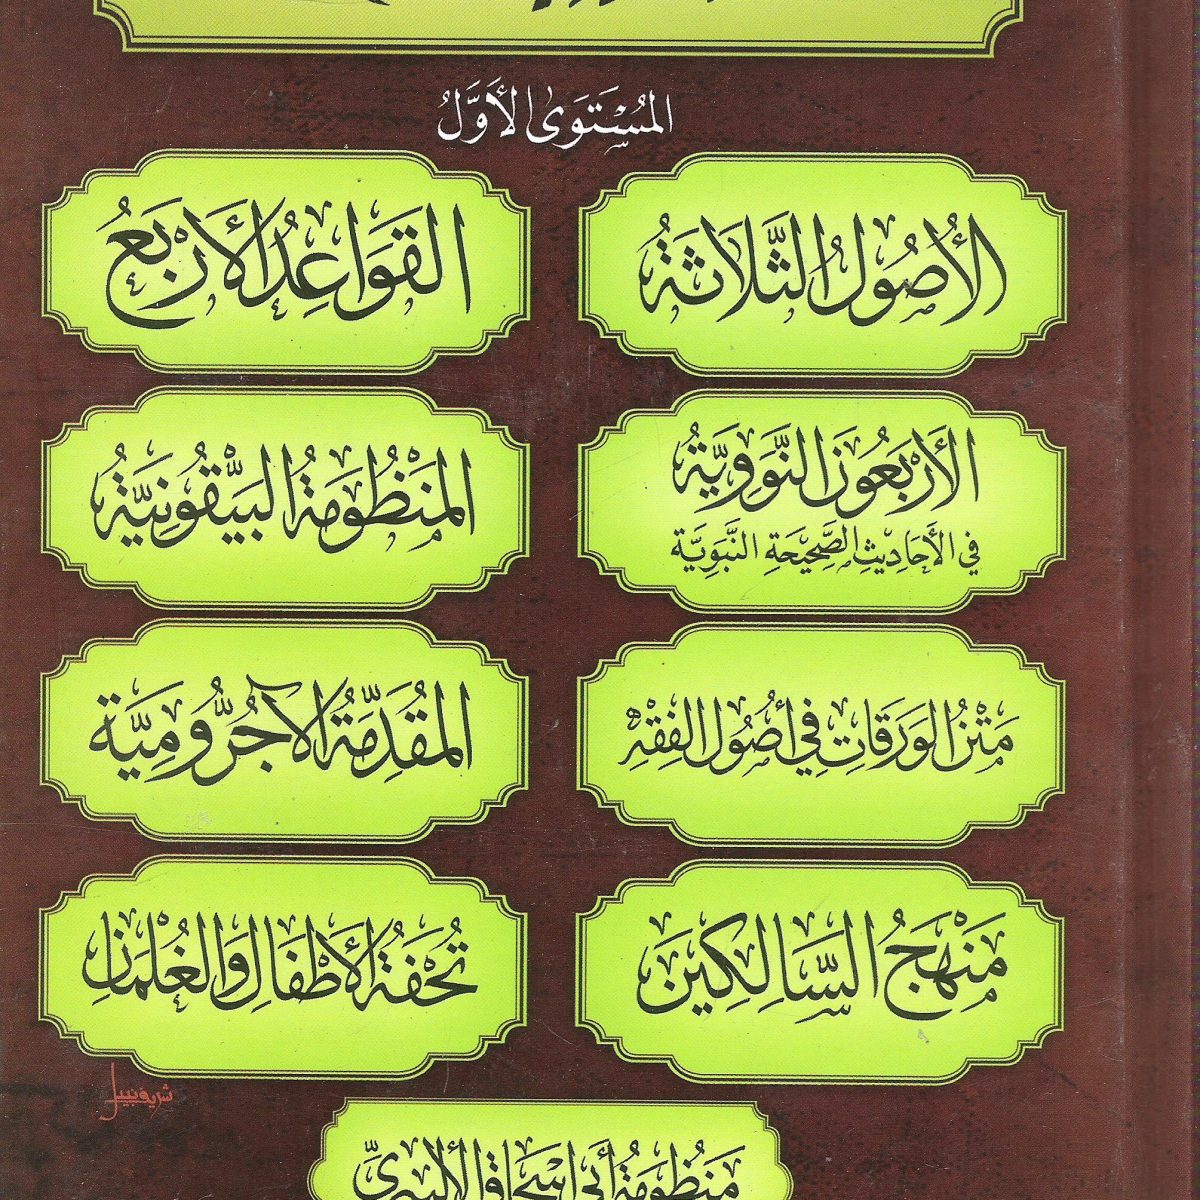 المُسْتَوَى الأَوَّلُ
الأُصُولُ الثَّلَاثَةُ
القَوَاعِدُ الأَرْبَعُ
الأَرْبَعُونَ النَّوَوِيَّةُ
في الأَحَادِيثِ الصَّحِيحَةِ النَّبَوِيَّةِ
المَنْظُومَةُ البَيْقُونِيَّةُ
مَتْنُ الوَرَقَاتِ فِي أُصُولِ الفِقْهِ
المُقَدِّمَةُ الآجُرُّومِيَّةُ
مَنْهَجُ السَّالِكِينَ
تُحْفَةُ الأَطْفَالِ وَالغُلْمَانِ
شريف نبيل
مَنْظُومَةُ أَبِي إِسْحَاقَ الأَلْبِيرِيِّ